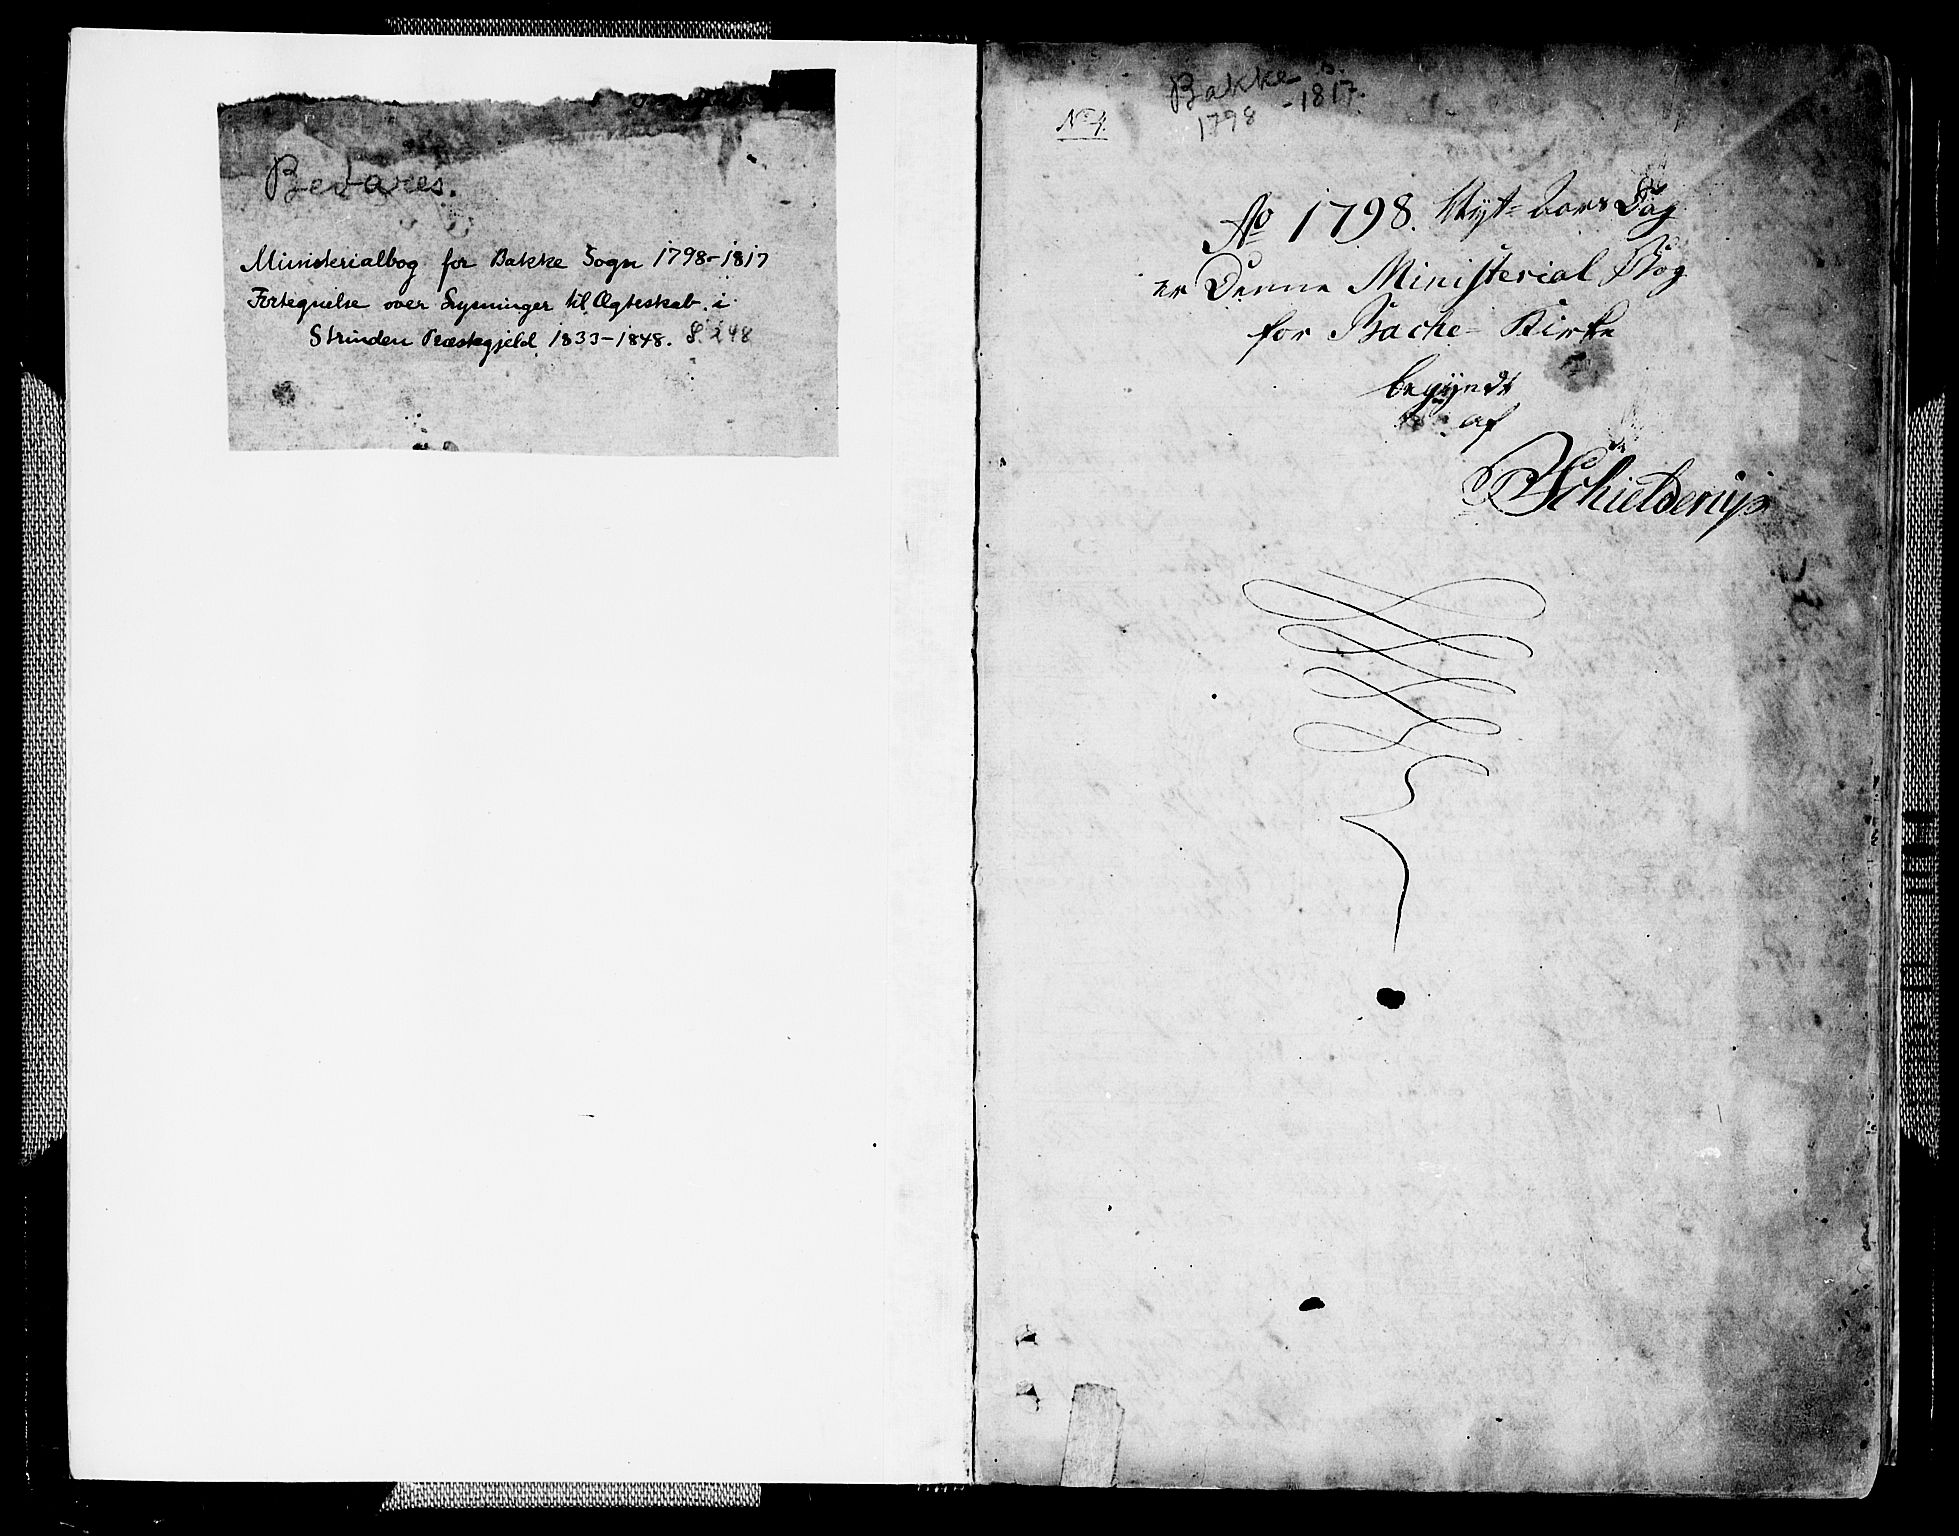 Bevares.
Ministerialbog for Bakke Sogn 1798-1817
Fortegnelse over Lysninger til Ægteskab i
Strinden Præstegjeld 1833-1848. S. 248
Bakke s.
1798 -1817.
No 4.
Ao 1798. Nyt-Aars Dag
er Denne Ministerial Bog
for Bache-Kirke
begyndt
af
Schielderup